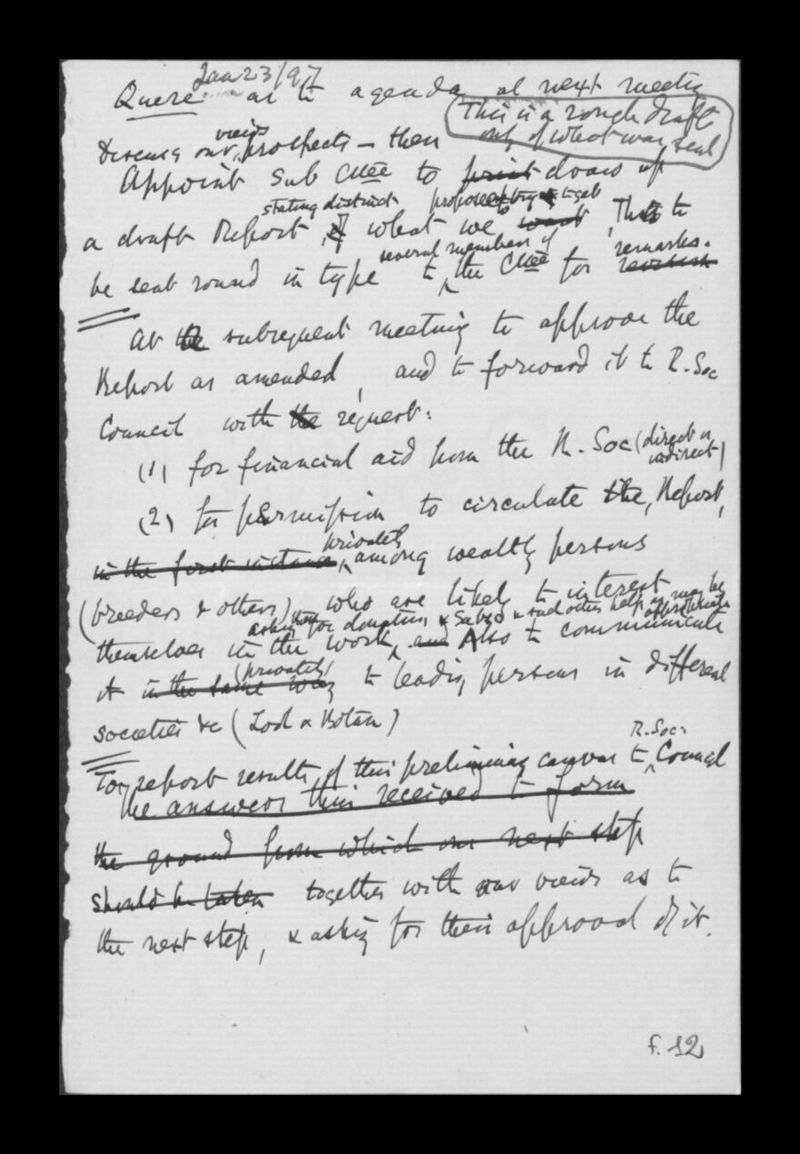 Jan 23/97
Quere as to agenda at next meeting
This is a rough draft
only of what was sent
Discuss our views, prospects – then
Appoint Sub Ctee to print draw up
stating district proposed to get
a draft Report, of what we want, This to
several members of remarks.
be sent round in type to the Ctee for revision
At the subsequent meeting to approve the
Report as amended, and to forward it to R. Soc
Council with the request:
(1) for financial aid from the R. Soc (direct or
indirect)
(2) for permission to circulate the Report,
privately
in the first instance, among wealthy persons
(breeders & others) who are likely to interest
asking them for donations & Subs & such other help as may be
themselves in the work, and Also to communicate appropriate
(privately)
it in the same way to leading persons in different
societies &c (Zool & Botan)
R. Soc:
To report results of this preliminary canvas to Council
The answers thus received to form
the ground from which our next step
should be taken together with our views as to
the next step, & asking for their approval of it.
f. 12